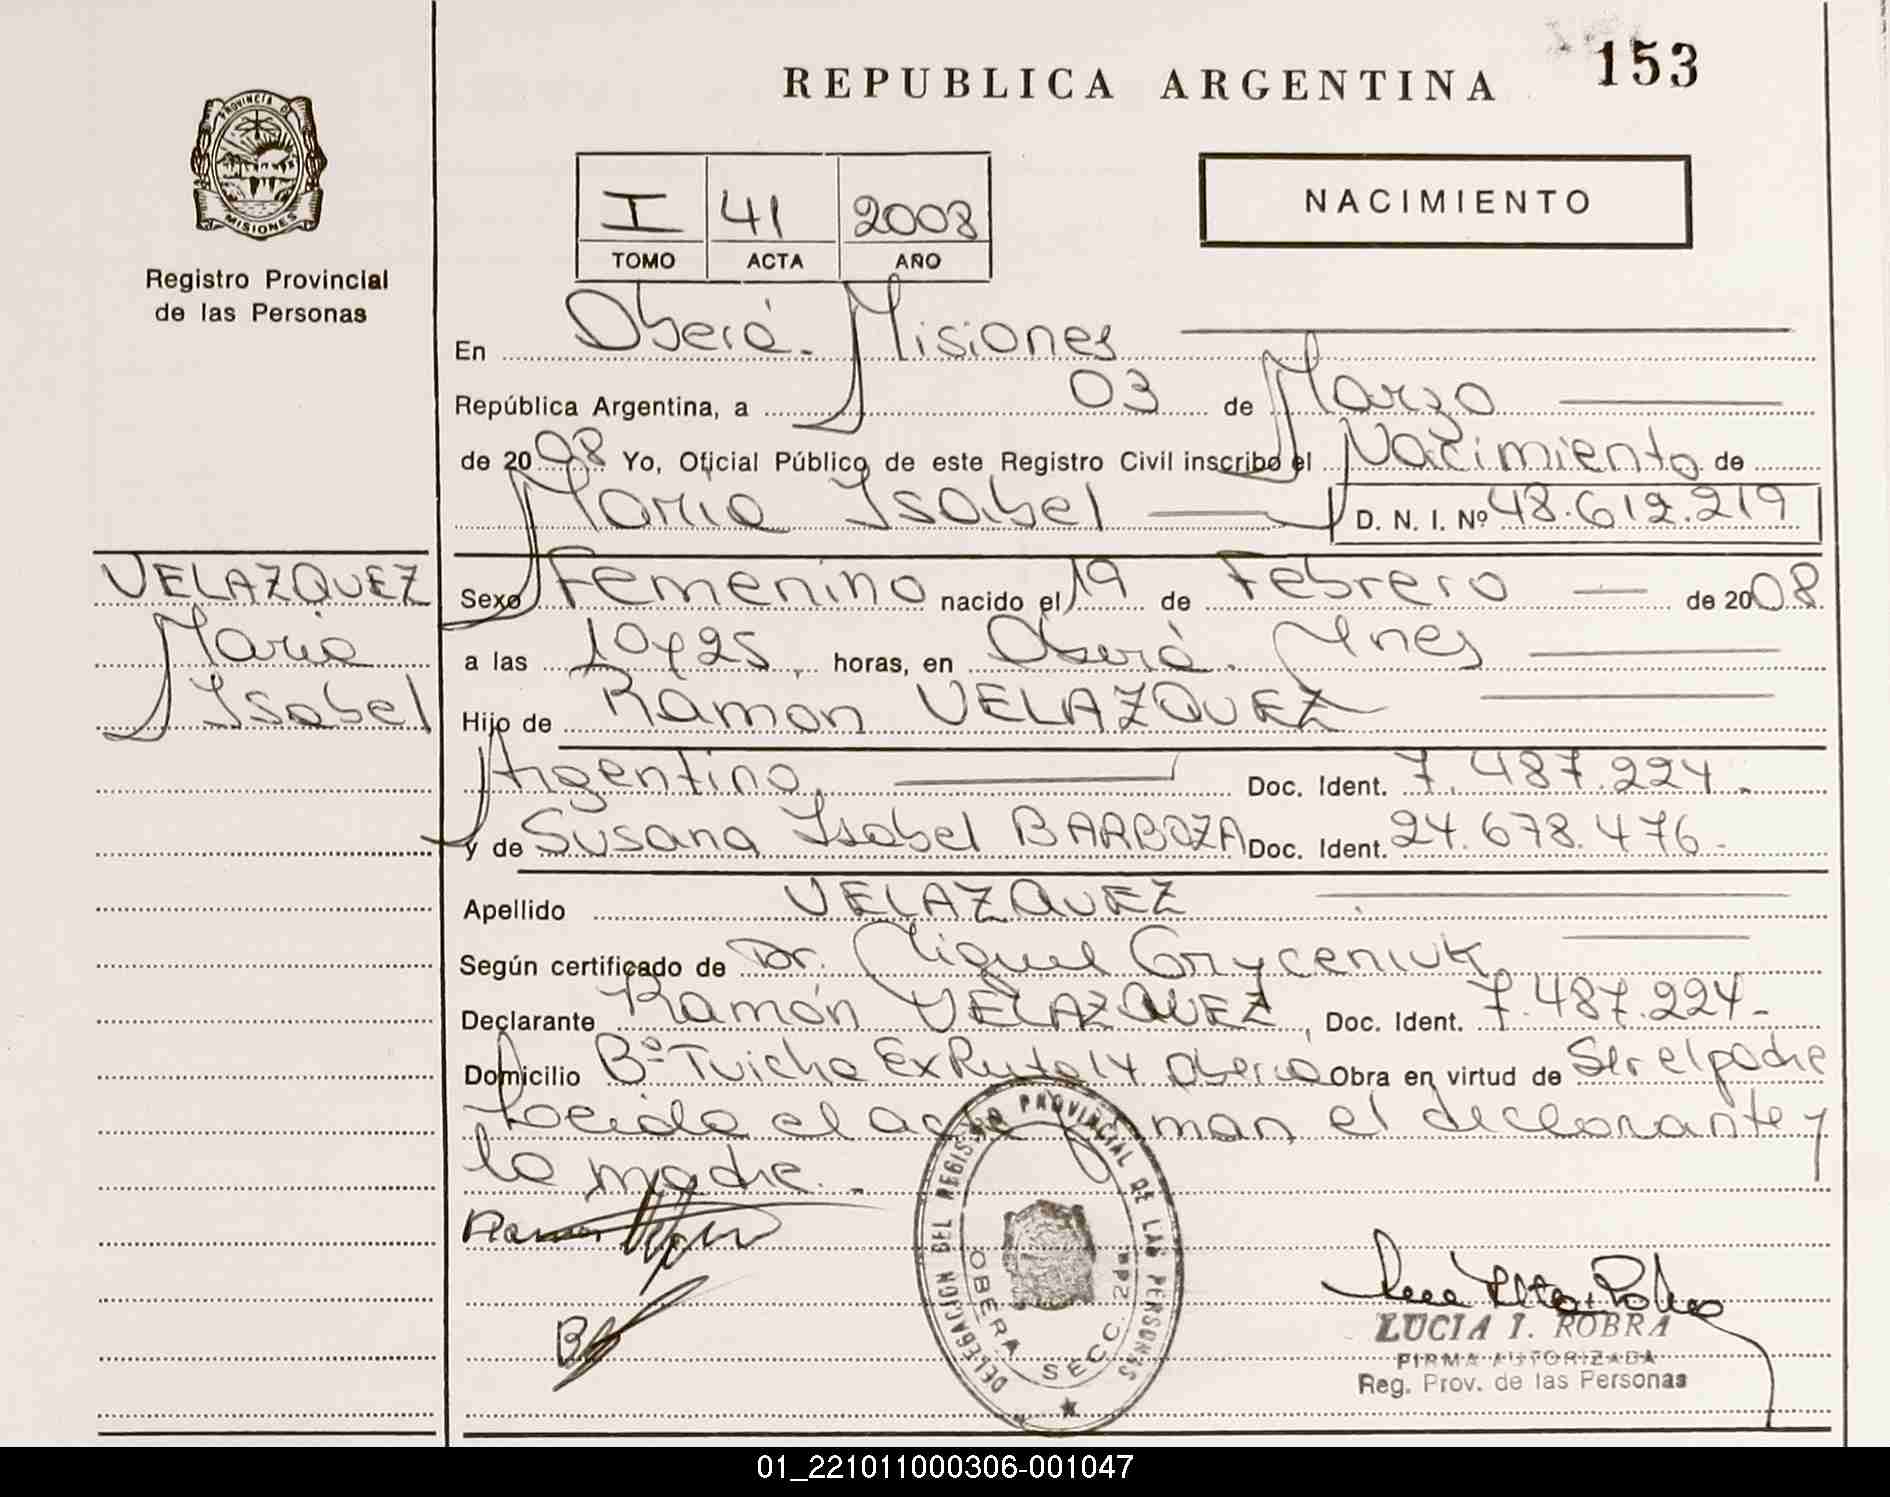 153
REPUBLICA ARGENTINA
PROVINCIA DE MISIONES
Registro Provincial
de las Personas
I 41 2008
TOMO ACTA AÑO
NACIMIENTO
En Oberá. Misiones
República Argentina, a 03 de Marzo
de 2008 Yo, Oficial Público de este Registro Civil inscribo el Nacimiento de
Maria Isabel D. N. I. Nº 48.612.219
VELAZQUEZ
Maria
Isabel
Sexo Femenino nacido el 19 de Febrero de 2008
a las 10y25 horas, en Oberá. Mnes
Hijo de Ramon VELAZQUEZ
Argentino Doc. Ident. 7.487.224.
y de Susana Isabel BARBOZA Doc. Ident. 24.678.476.
Apellido VELAZQUEZ
Según certificado de Dr. Miguel Gryceniuk
Declarante Ramón VELAZQUEZ, Doc. Ident. 7.487.224-
Domicilio Bº Tuicha Ex Ruta 14 Oberá Obra en virtud de Ser el padre
Leida el acta firman el declarante y
la madre.
DELEGACION DEL REGISTRO PROVINCIAL DE LAS PERSONAS
OBERA SECC. 2
LUCIA I. ROBRA
FIRMA AUTORIZADA
Reg. Prov. de las Personas
01_221011000306-001047